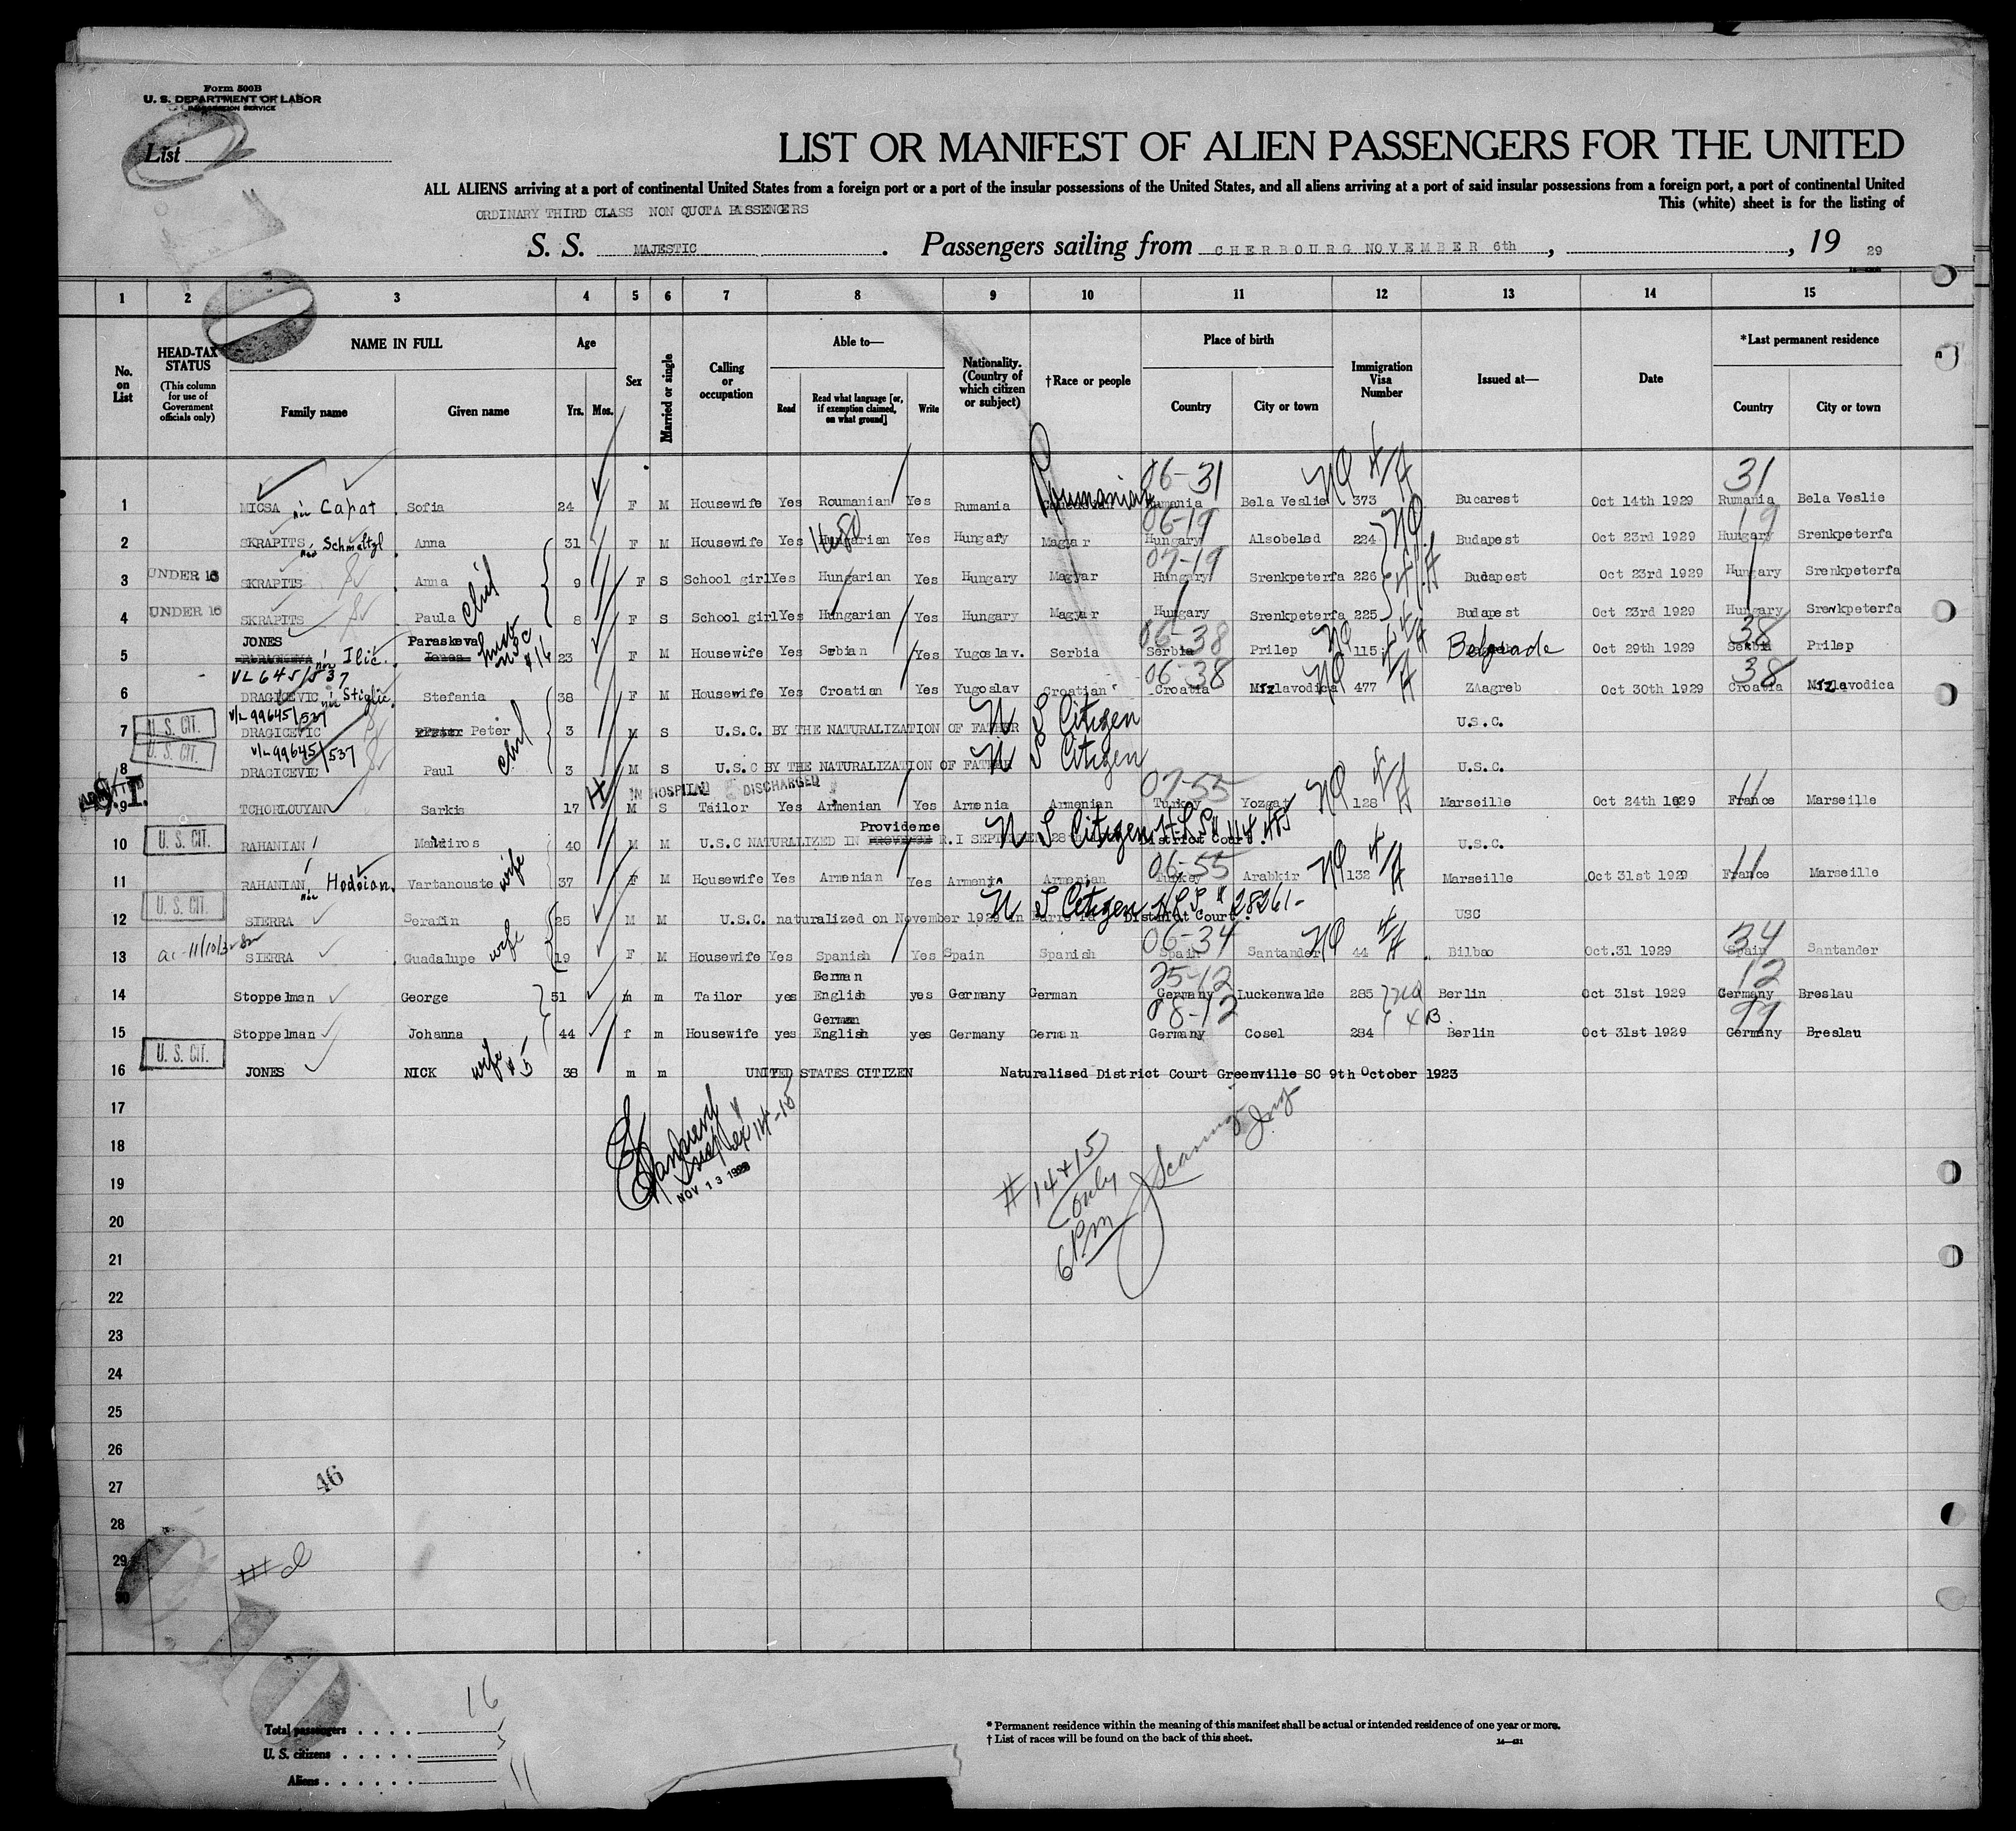 Form 500B
U. S. DEPARTMENT OF LABOR
IMMIGRATION SERVICE
List
LIST OR MANIFEST OF ALIEN PASSENGERS FOR THE UNITED
ALL ALIENS arriving at a port of continental United States from a foreign port or a port of the insular possessions of the United States, and all aliens arriving at a port of said insular possessions from a foreign port, a port of continental United
This (white) sheet is for the listing of
ORDINARY THIRD CLASS NON QUOTA PASSENGERS
S. S. MAJESTIC. Passengers sailing from CHERBOURG NOVEMBER 6th, , 19 29
1 2 3 4 5 6 7 8 9 10 11 12 13 14 15
No. on List
HEAD-TAX STATUS (This column for use of Government officials only)
NAME IN FULL Family name Given name
Age Yrs. Mos.
Sex
Married or single
Calling or occupation
Able to— Read Read what language [or, if exemption claimed, on what ground] Write
Nationality. (Country of which citizen or subject)
†Race or people
Place of birth Country City or town
Immigration Visa Number
Issued at—
Date
*Last permanent residence Country City or town
06-31 NQ 4/A 31
1 MICSA née Capat Sofia 24 F M Housewife Yes Roumanian Yes Rumania Roumanian Rumania Bela Veslie 373 Bucarest Oct 14th 1929 Rumania Bela Veslie
06-19 NQ 19
2 SKRAPITS née Schmeltzl Anna 31 F M Housewife Yes Hungarian Yes Hungary Magyar Hungary Alsobeled 224 Budapest Oct 23rd 1929 Hungary Srenkpeterfa
07-19
3 UNDER 16 SKRAPITS Anna 9 F S School girl Yes Hungarian Yes Hungary Magyar Hungary Srenkpeterfa 226 Budapest Oct 23rd 1929 Hungary Srenkpeterfa
4 UNDER 16 SKRAPITS Paula 8 F S School girl Yes Hungarian Yes Hungary Magyar Hungary Srenkpeterfa 225 Budapest Oct 23rd 1929 Hungary Srenkpeterfa
JONES Paraskeva husb USC #16 06-38 NQ 4/A 38
5 née Ilic. Jones 23 F M Housewife Yes Serbian Yes Yugoslav. Serbia Serbia Prilep 115 Belgrade Oct 29th 1929 Serbia Prilep
VL 645/537 06-38 NQ 4/A 38
6 DRAGICEVIC née Stiglic. Stefania 38 F M Housewife Yes Croatian Yes Yugoslav Croatian Croatia Mrzlavodica 477 ZAagreb Oct 30th 1929 Croatia Mrzlavodica
V/L 99645/537
7 U. S. CIT. DRAGICEVIC Peter 3 M S U.S.C. BY THE NATURALIZATION OF FATHER U S Citizen U.S.C.
V/L 99645/537
8 U. S. CIT. DRAGICEVIC Paul 3 M S U.S.C BY THE NATURALIZATION OF FATHER U S Citizen U.S.C.
ADMITTED S.I. IN HOSPITAL DISCHARGED 07-55 NQ 4/A 11
9 TCHORLOUYAN Sarkis 17 M S Tailor Yes Armenian Yes Armenia Armenian Turkey Yozgat 128 Marseille Oct 24th 1929 France Marseille
Providence U S Citizen
10 U. S. CIT. RAHANIAN 40 M M U.S.C NATURALIZED IN PROVINCE R.I SEPTEMBER 28 District Court U.S.C.
06-55 NQ 4/A 11
11 RAHANIAN née Hodoian. Vartanouste wife 37 F M Housewife Yes Armenian Yes Armenia Armenian Turkey Arabkir 132 Marseille Oct 31st 1929 France Marseille
12 U. S. CIT. SIERRA Serafin 25 M M U.S.C. naturalized on November 1928 in Barre U S Citizen 28261- District Court. USC
06-34 NQ 4/A 34
13 SIERRA Guadalupe wife 19 F M Housewife Yes Spanish Yes Spain Spanish Spain Santander 44 Bilbao Oct.31 1929 Spain Santander
German 25-12 12
14 Stoppelman George 51 m m Tailor yes English yes Germany German Germany Luckenwalde 285 Berlin Oct 31st 1929 Germany Breslau
German 08-12 4B 99
15 Stoppelman Johanna 44 f m Housewife yes English yes Germany German Germany Cosel 284 Berlin Oct 31st 1929 Germany Breslau
16 U. S. CIT. JONES NICK wife #5 38 m m UNITED STATES CITIZEN Naturalised District Court Greenville SC 9th October 1923
17
18
19
20
21
22
23
24
25
26
27
28
29
30
NOV 13 1929
#14+15 only 6 PM
46
Total passengers . . . . 16
U. S. citizens . . . . . 5
Aliens . . . . . . 11
* Permanent residence within the meaning of this manifest shall be actual or intended residence of one year or more.
† List of races will be found on the back of this sheet.
14—431